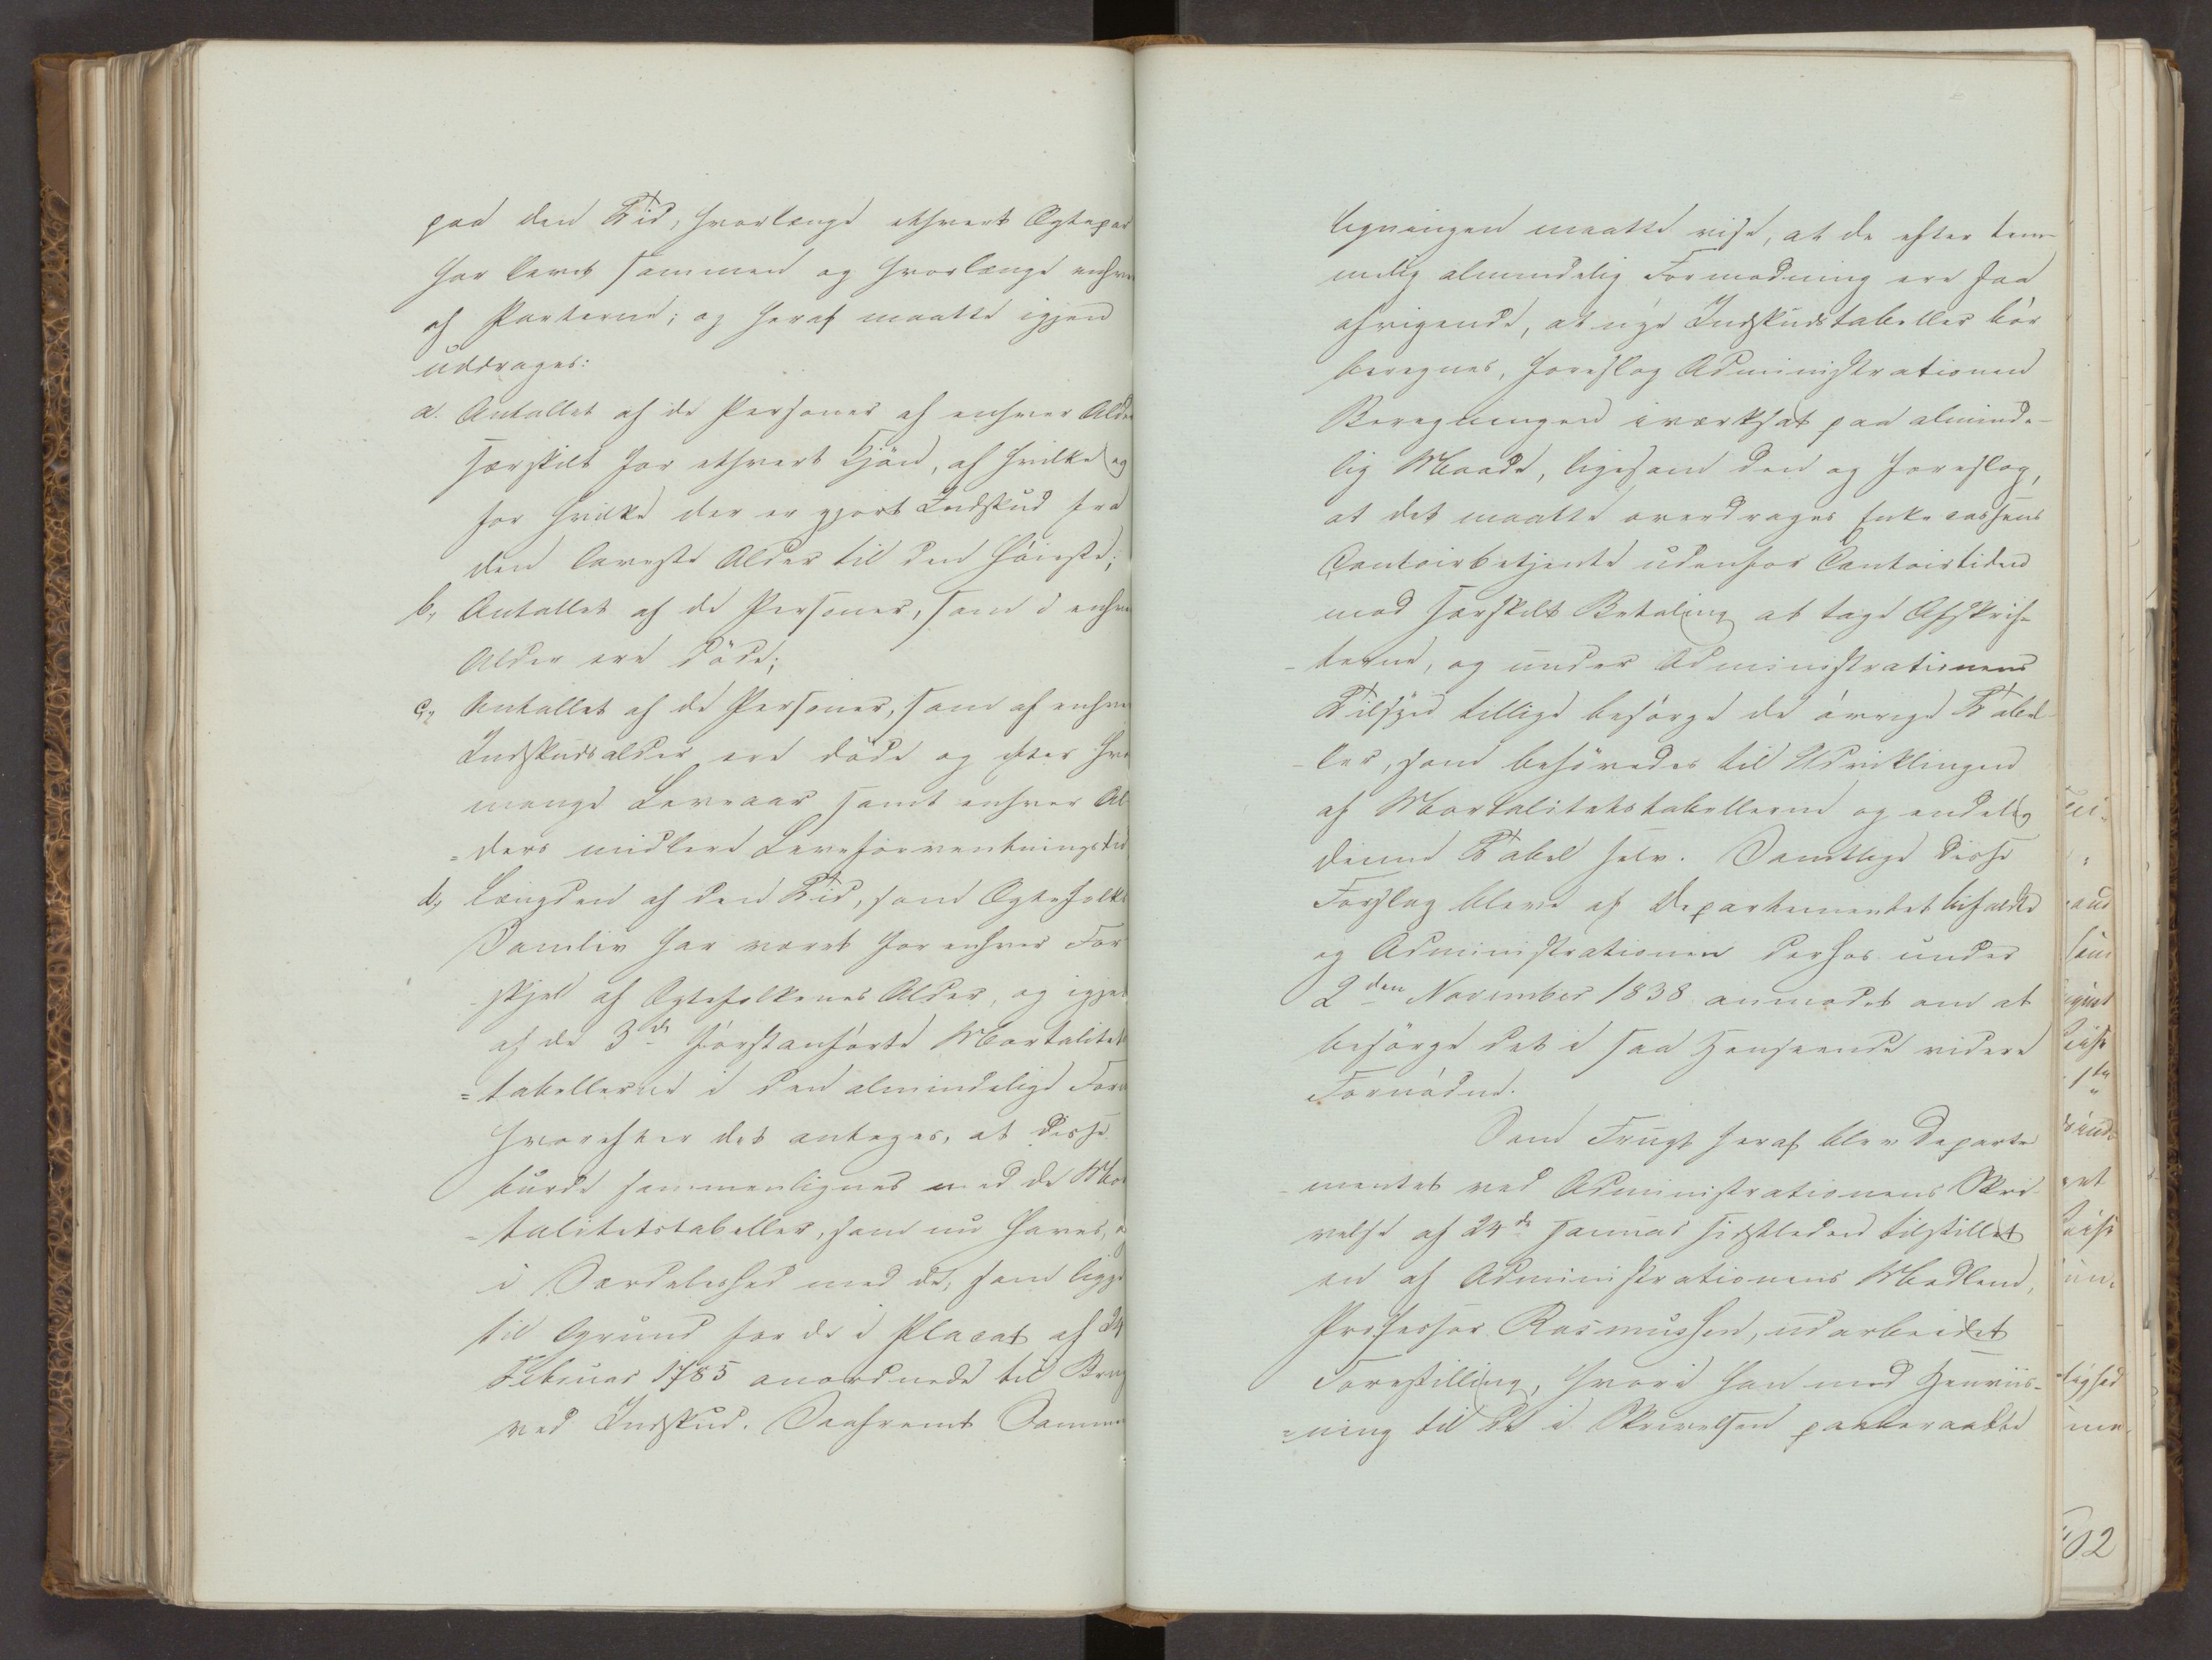 paa den Tid, hvorlænge ethvert Ægtepar
har levet sammen og hvorlænge enhver
af Parterne; og heraf maatte igjen
uddrages:
a. Antallet af de Personer af enhver Alder
særskilt for ethvert Kjön, af hvilke og
for hvilke der er gjort Indskud fra
den laveste Alder til den høieste;
b, Antallet af de Personer, som i enhver
Alder ere døde;
c, Antallet af de Personer, som af enhver
Indskudsalder ere døde og efter hvor
mange Leveaar samt enhver Al
=ders midlere Leveforventningstid
d, Længden af den Tid, som Ægtefolks
Samliv har været for enhver For
skjel af Ægtefolkenes Alder, og igjen
af de 3de førstanførte Mortalitets
=tabellerne i den almindelige Form
hvorefter det antages, at disse
burde sammenlignes med de Mor
=talitetstabeller, som nu haves, og
i Særdeleshed med de, som ligge
til Grund for de i Placat af 24
Februar 1785 anordnede til Brug
ved Indskud. Saafremt Sammen
ligningen maatte vise, at de efter tem-
melig almindelig Formodning ere saa
afvigende, at nye Indskudstabeller bör
beregnes, foreslog Administrationen
Beregningen iværksat paa alminde-
lig Maade, ligesom den og foreslog,
at det maatte overdrages Enkecassens
Contoirbetjente udenfor Contoirtiden
mod særskilt Betaling at tage Afskrif-
-terne, og under Administrationens
Tilsyn tillige besørge de øvrige Tabel-
-ler, som behøvedes til Udviklingen
af Mortalitetstabellerne og endelig
denne Tabel selv. Samtlige disse
Forslag bleve af Departementet bifaldte
og Administrationen derhos under
2den November 1838 anmodet om at
besørge det i saa Henseende videre
Fornødne.
Som Frugt heraf blev Departe
-mentet ved Administrationens Skri-
velse af 24de Januar sidstleden tilstillet
en af Administrationens Medlem,
Professor Rasmussen, udarbeidet
Forestilling, hvori han med Henviis-
=ning til de i Skrivelsen paaberaabte